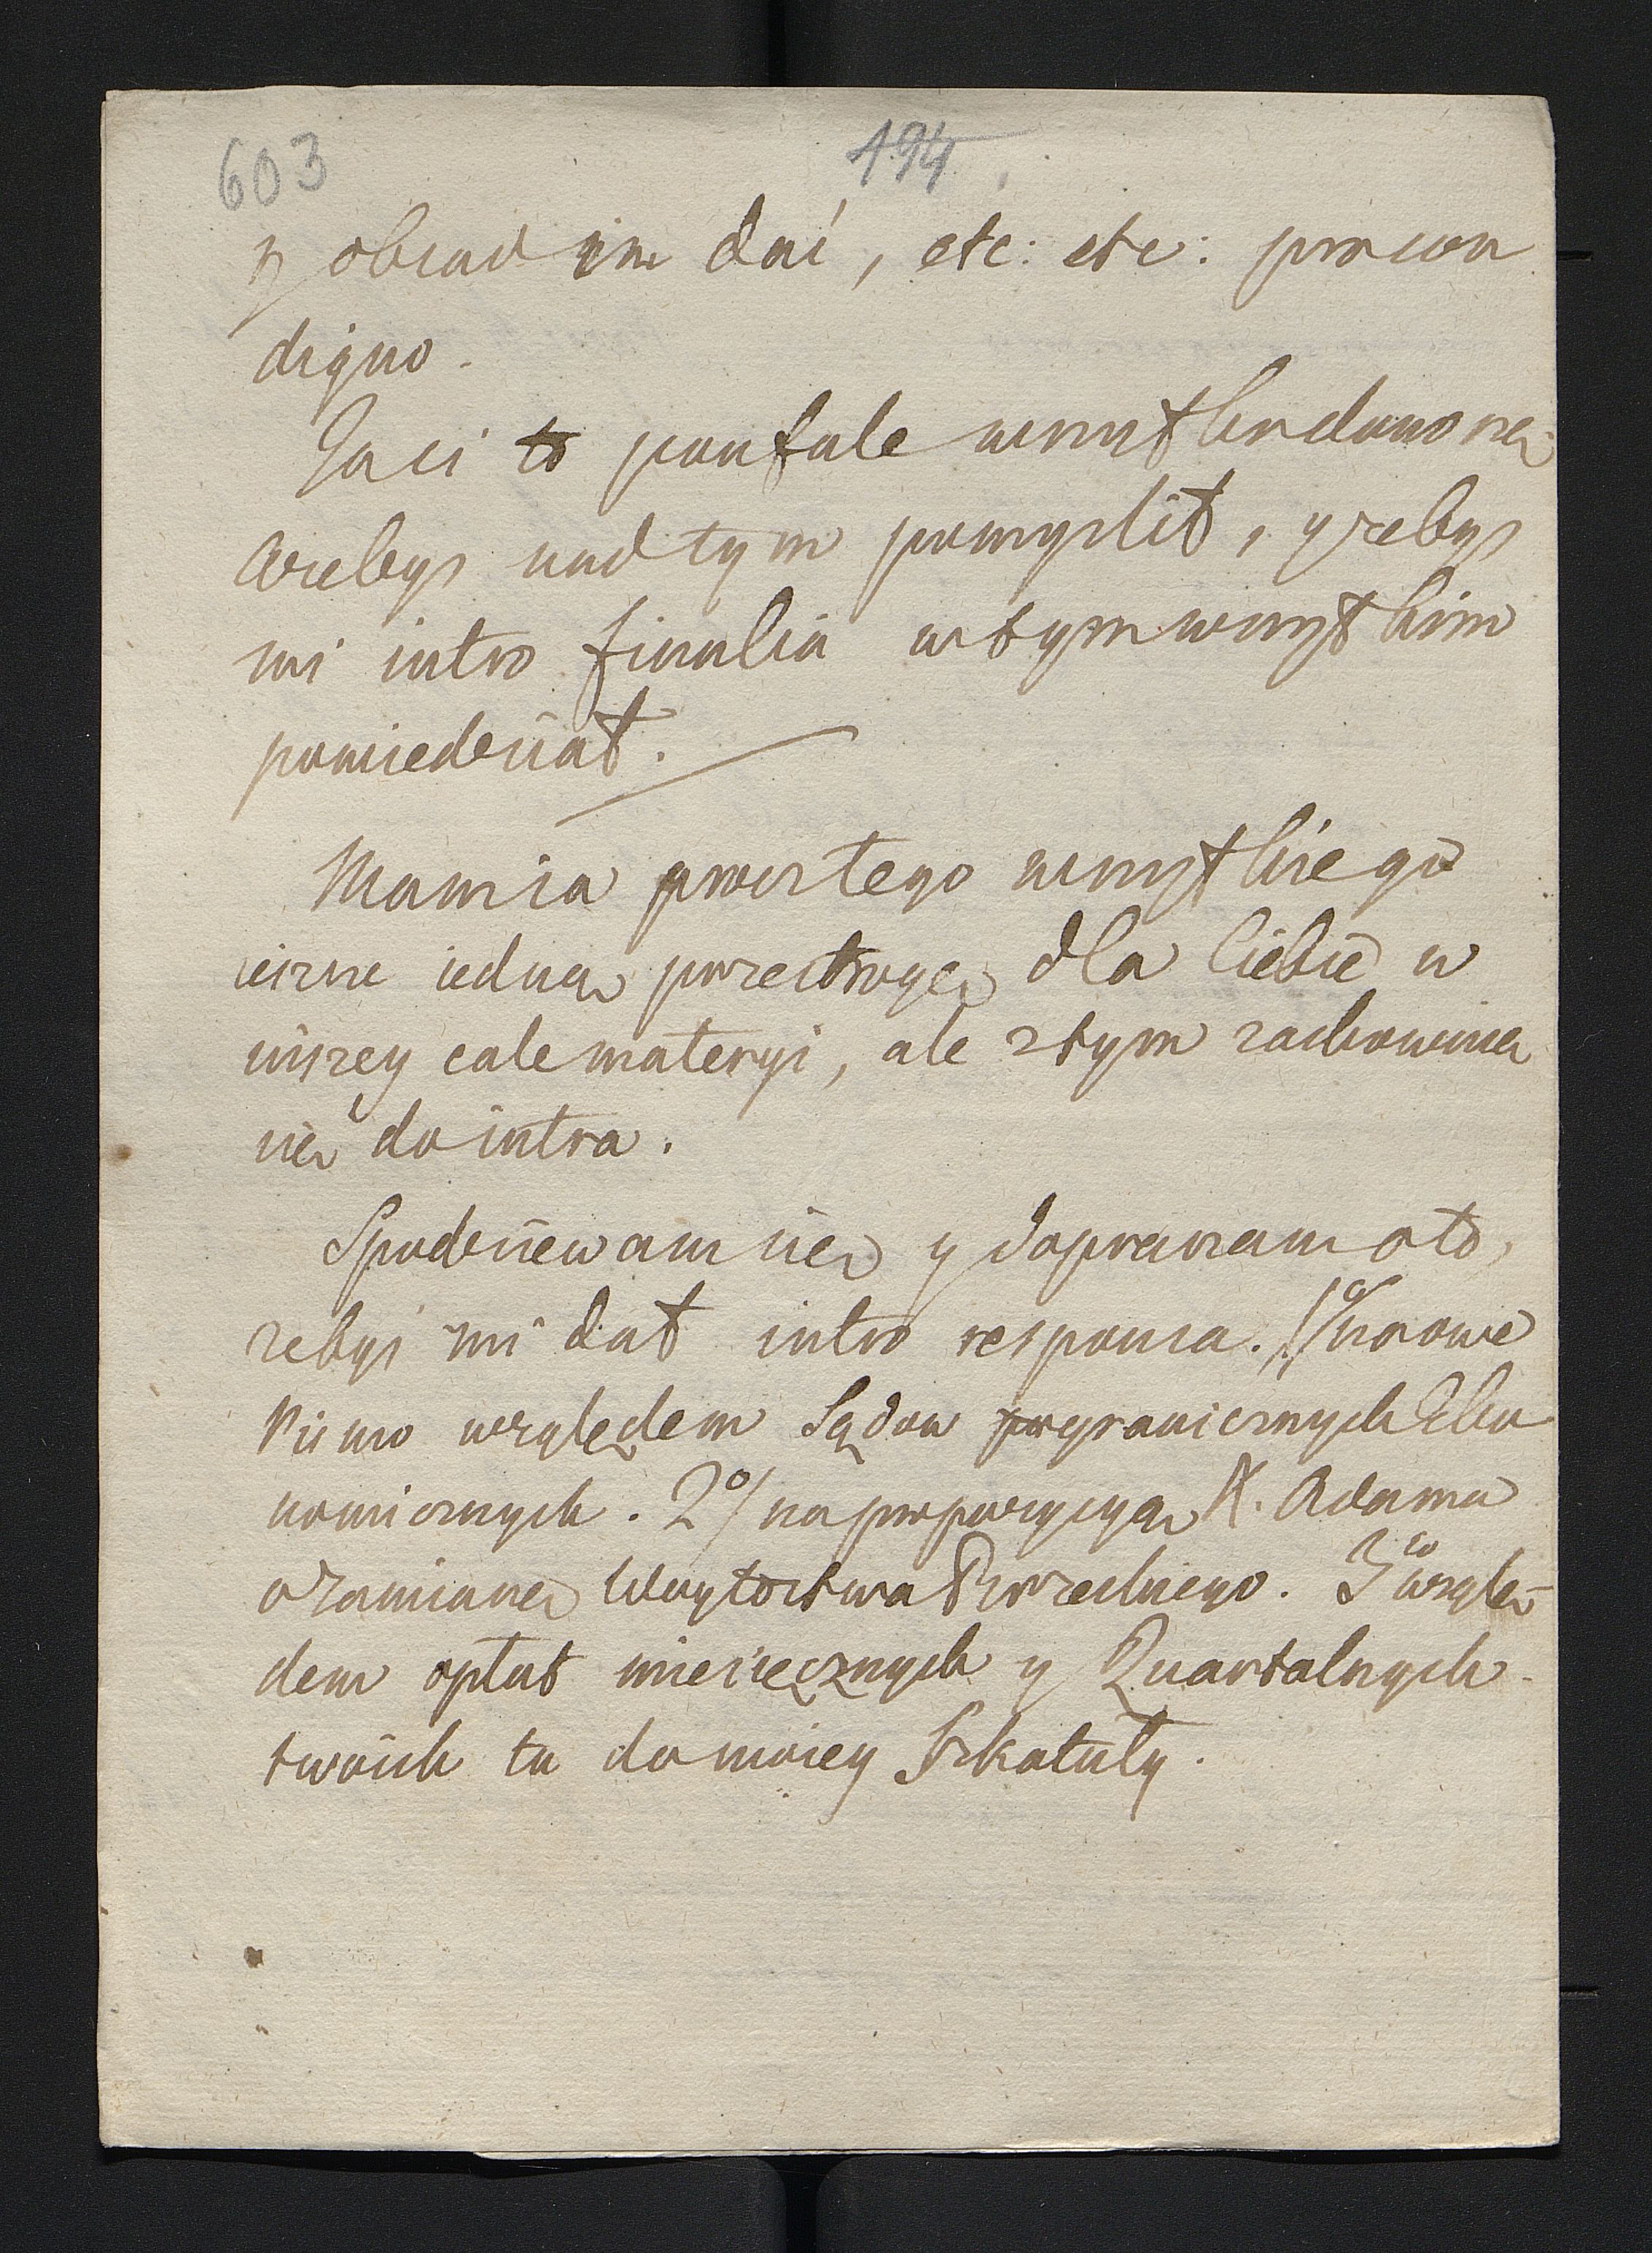 603
194
y obiad im dać, etc: etc: pro coa
digno.
Ja ci to poufale wszystko donoszę
ażebyś nad tym pomyslił, y żebyś
mi iutro finalia w tym wszystkim
powiedział.
Mam ia procz tego wszystkiego
ieszcze iedną przestrogę dla Ciebie w
inszey cale materyi, ale z tym zachowuię
się do iutra.
Spodziewam się y dopraszam o to,
żebyś mi dał iutro responsa. 1º/ na owe
Pismo względem Sądow pogranicznych Eko
nomicznych. 2º/ na propozycyą X. Adama
o zamianę Woytostwa Przechiego. 3io wzglę-
dem opłat miesięcznych y Quartalnych
twoich tu do moiey Szkatuły.